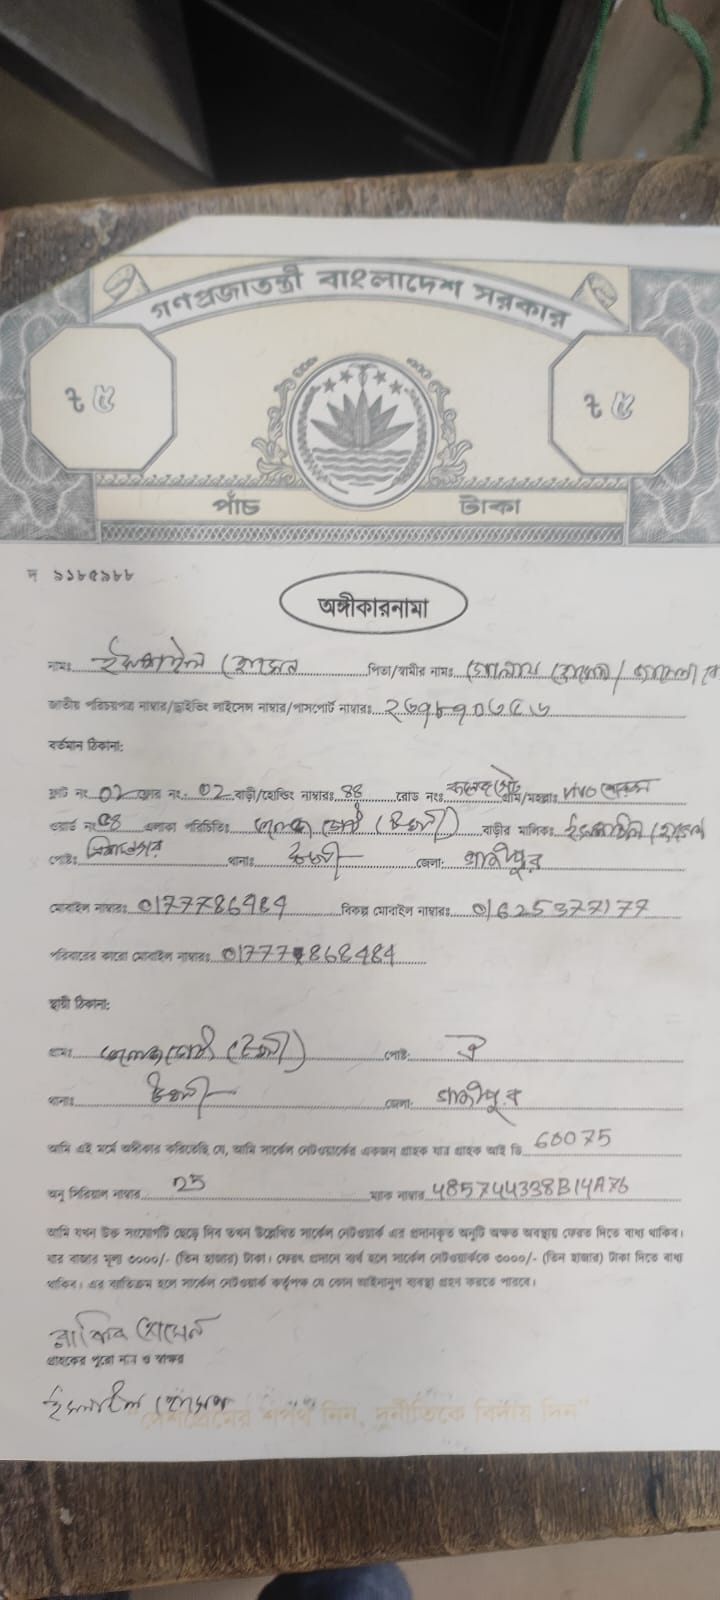 গণপ্রজাতন্ত্রী বাংলাদেশ সরকার
৳ ৫ ৳ ৫
পাঁচ টাকা
দ ৯১৮৫৯৮৮
অঙ্গীকারনামা
নামঃ ইসমাইল হোসেন পিতা/স্বামীর নামঃ
জাতীয় পরিচয়পত্র নাম্বার/ড্রাইভিং লাইসেন্স নাম্বার/পাসপোর্ট নাম্বারঃ
বর্তমান ঠিকানা:
ফ্লাট নং 02 ফ্লোর নং: 02 বাড়ী/হোল্ডিং নাম্বারঃ 88 রোড নংঃ কলেজ গেট গ্রাম/মহল্লাঃ vivo
ওয়ার্ড নংঃ এলাকা পরিচিতিঃ কলেজ গেট (টঙ্গী) বাড়ীর মালিকঃ ইসমাইল হোসেন
পোষ্টঃ থানাঃ টঙ্গী জেলা: গাজীপুর
মোবাইল নাম্বারঃ 0177786484 বিকল্প মোবাইল নাম্বারঃ 01625377177
পরিবারের কারো মোবাইল নাম্বারঃ 01777868484
স্থায়ী ঠিকানা:
গ্রামঃ কলেজ গেট (টঙ্গী) পোষ্ট: ঐ
থানাঃ টঙ্গী জেলা: গাজীপুর
আমি এই মর্মে অঙ্গীকার করিতেছি যে, আমি সার্কেল নেটওয়ার্কের একজন গ্রাহক যার গ্রাহক আই ডি 60075
অনু সিরিয়াল নাম্বার 25 ম্যাক নাম্বার 485744338B14A76
আমি যখন উক্ত সংযোগটি ছেড়ে দিব তখন উল্লেখিত সার্কেল নেটওয়ার্ক এর প্রদানকৃত অনুটি অক্ষত অবস্থায় ফেরত দিতে বাধ্য থাকিব।
যার বাজার মূল্য ৩০০০/- (তিন হাজার) টাকা। ফেরৎ প্রদানে ব্যর্থ হলে সার্কেল নেটওয়ার্ককে ৩০০০/- (তিন হাজার) টাকা দিতে বাধ্য
থাকিব। এর ব্যতিক্রম হলে সার্কেল নেটওয়ার্ক কর্তৃপক্ষ যে কোন আইনানুগ ব্যবস্থা গ্রহন করতে পারবে।
রাকিব হোসেন
গ্রাহকের পুরো নাম ও স্বাক্ষর
ইসমাইল হোসেন
"দেশপ্রেমের শপথ নিন, দুর্নীতিকে বিদায় দিন"